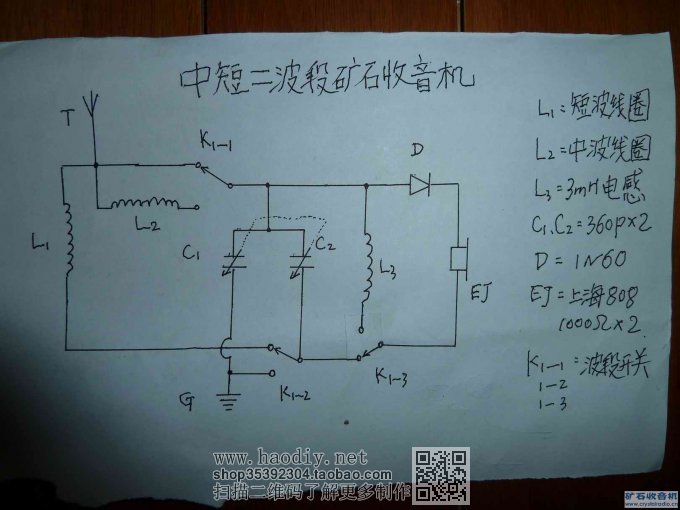 中短二波段矿石收音机
T
K1-1
D
L1=短波线圈
L2=中波线圈
L3=3mH电感
C1、C2=360P×2
D=1N60
EJ=上海808
1000Ω×2
K1-1=波段开关
1-2
1-3
L2
L1
C1
C2
L3
EJ
K1-3
K1-2
G
www.haodiy.net
shop35392304.taobao.com
扫描二维码了解更多制作
矿石收音机
www.crystalradio.cn